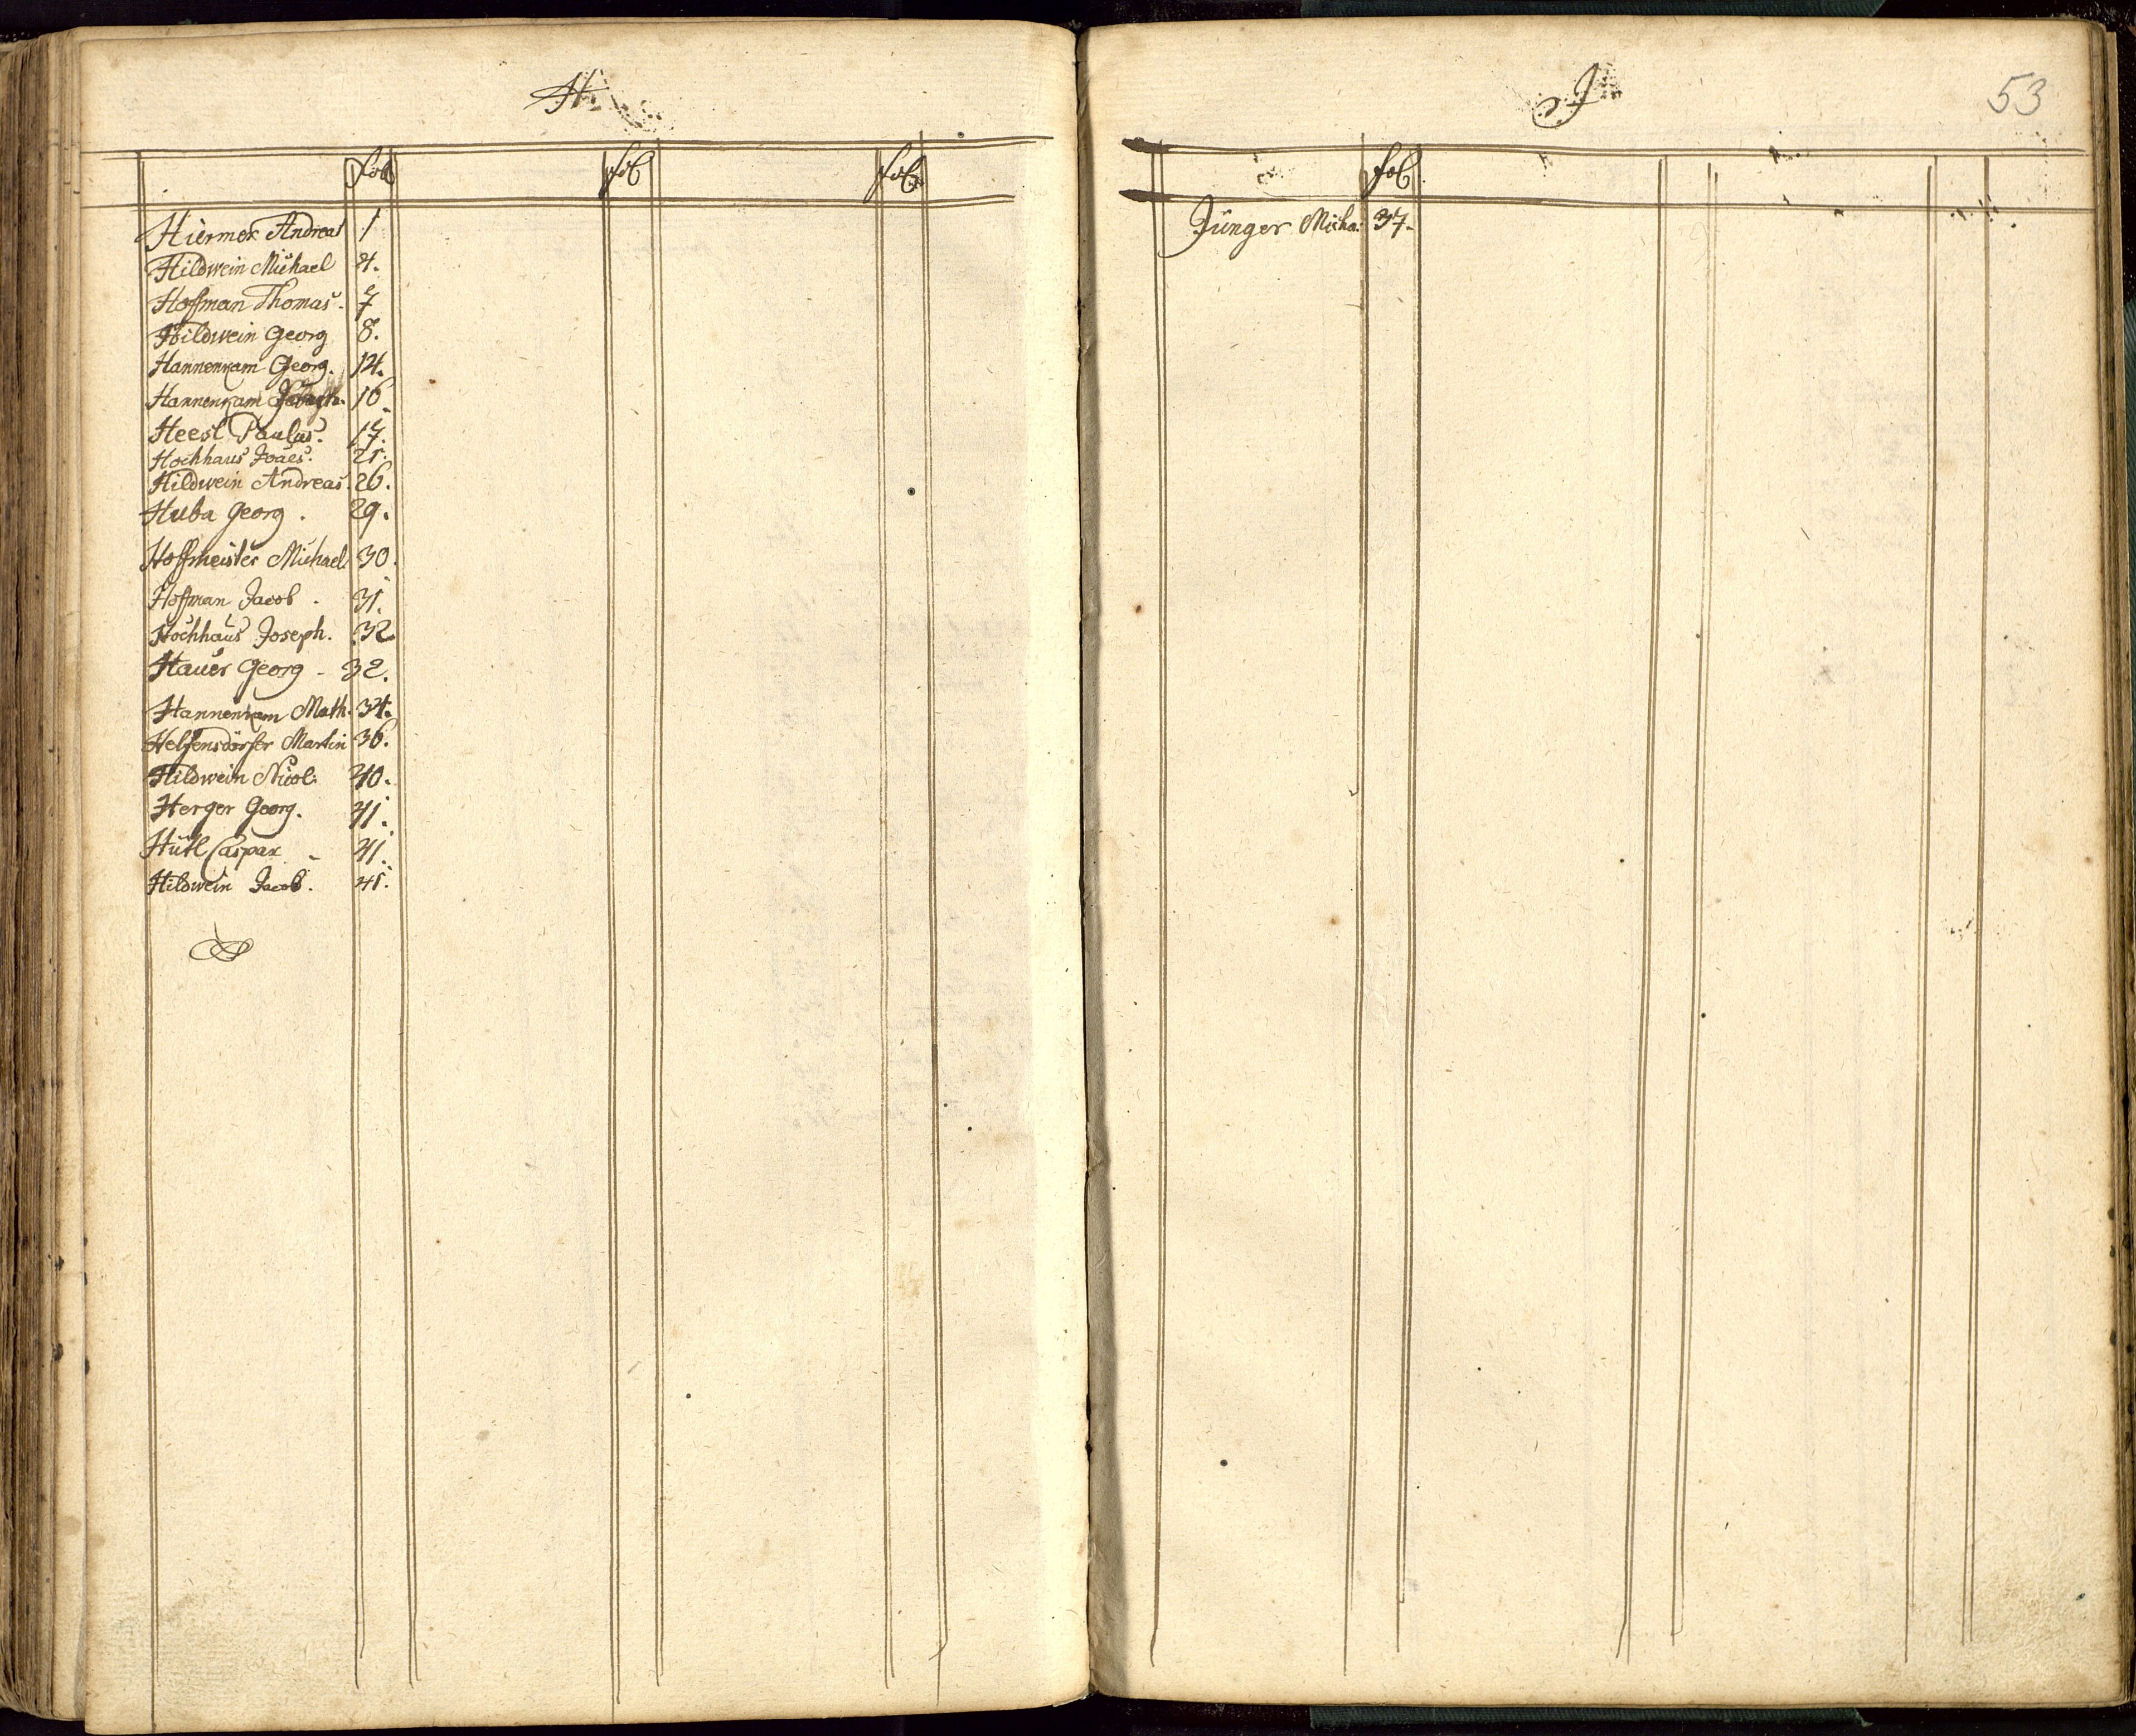 H
fol fol fol
Hiermer Andreas 1
Hildwein Michael 4.
Hoffman Thomas. 7
Hildwein Georg 8.
Hannenkam Georg. 14.
Hannenkam 16.
Heesl Paulus. 17.
Hochhaus Joaēs. 21.
Hildwein Andreas. 26.
Huba Georg . 29.
Hoffmeister Michael 30.
Hoffman Jacob . 31.
Hochhaus Joseph. 32
Hauer Georg - 32.
Hannenkam Math. 34.
Helfensdörfer Martin 36.
Hildwein Nicol: 40.
Herger Georg. 41.
Hütl Caspar - 41.
Hildwein Jacob. 41.
J
53
fol
Jünger Micha: 37.